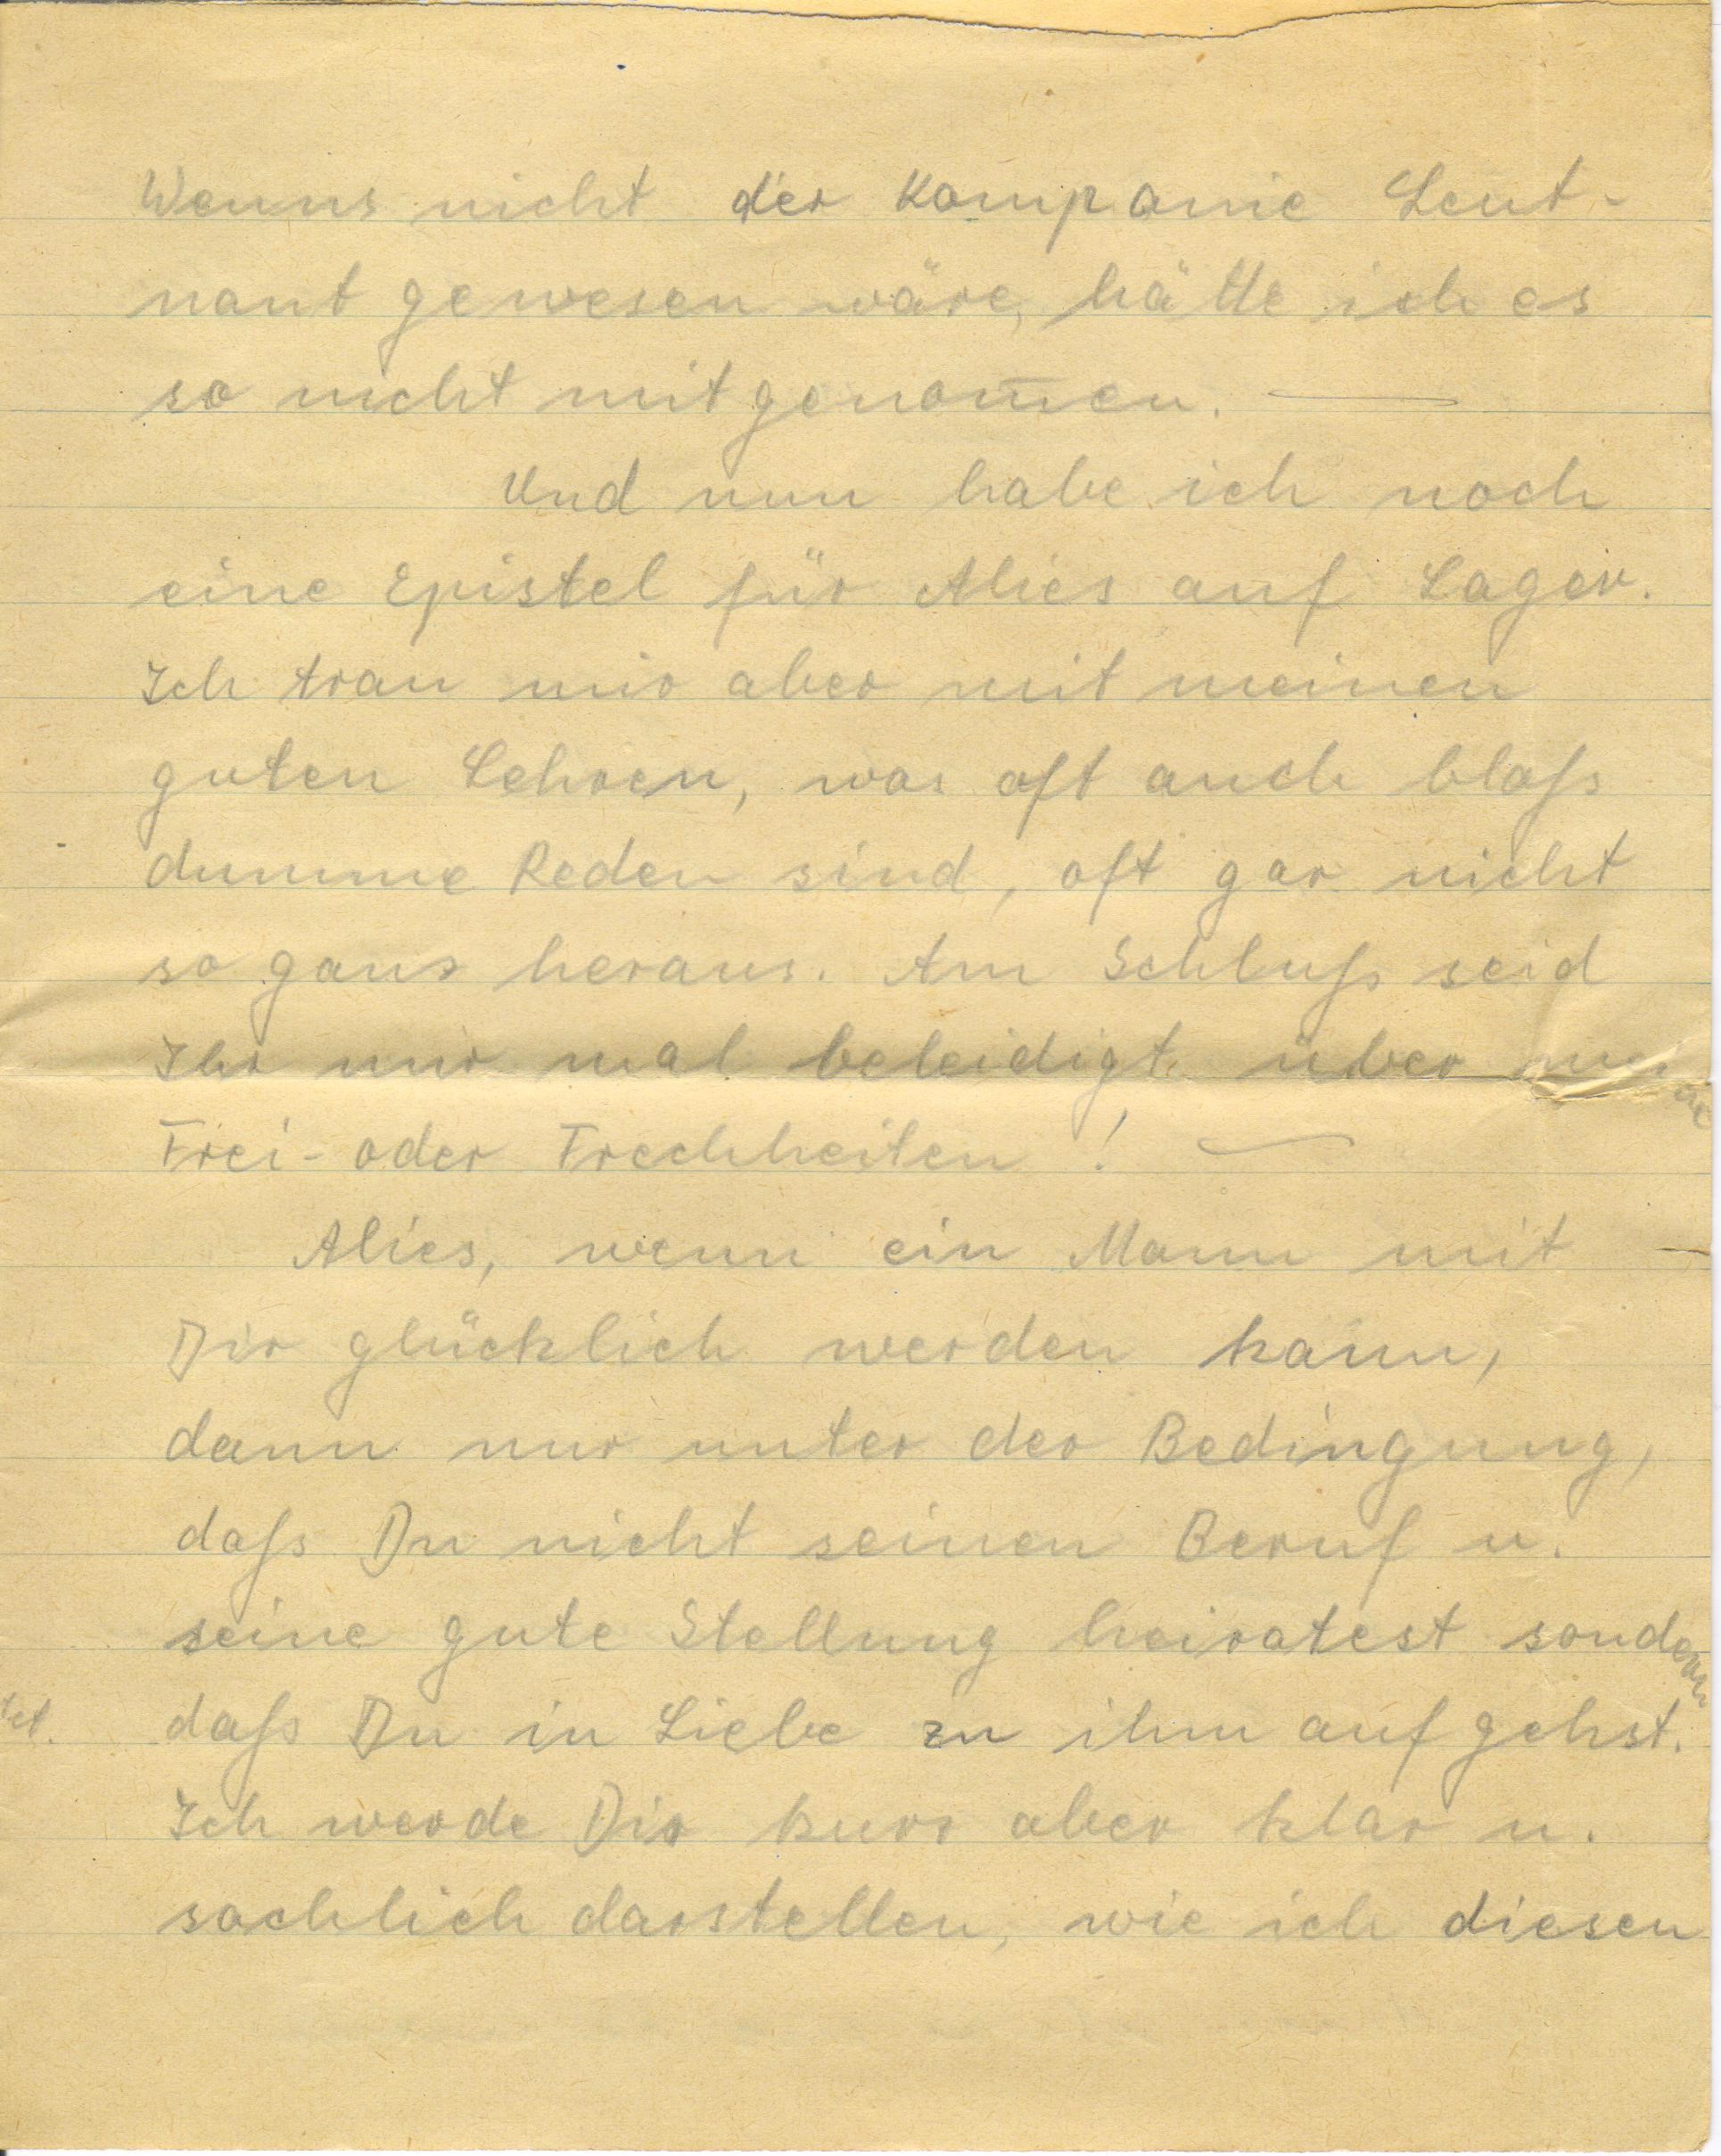 Wenns nicht der Kompanie Leut-
nant gewesen wäre, hätte ich es
so nicht mitgenom̄en. —
Und nun habe ich noch
eine Epistel für Alies auf Lager.
Ich trau mir aber mit meinen
guten Lehren, was oft auch bloß
dumme Reden sind, oft gar nicht
so ganz heraus. Am Schluß seid
Ihr mir mal beleidigt über meine
Frei- oder Frechheiten! —
Alies, wenn ein Mann mit
Dir glücklich werden kann,
dann nur unter der Bedingung,
daß Du nicht seinen Beruf u.
seine gute Stellung heiratest sondern
daß Du in Liebe zu ihm aufgehst.
Ich werde Dir kurz aber klar u.
sachlich darstellen, wie ich diesen